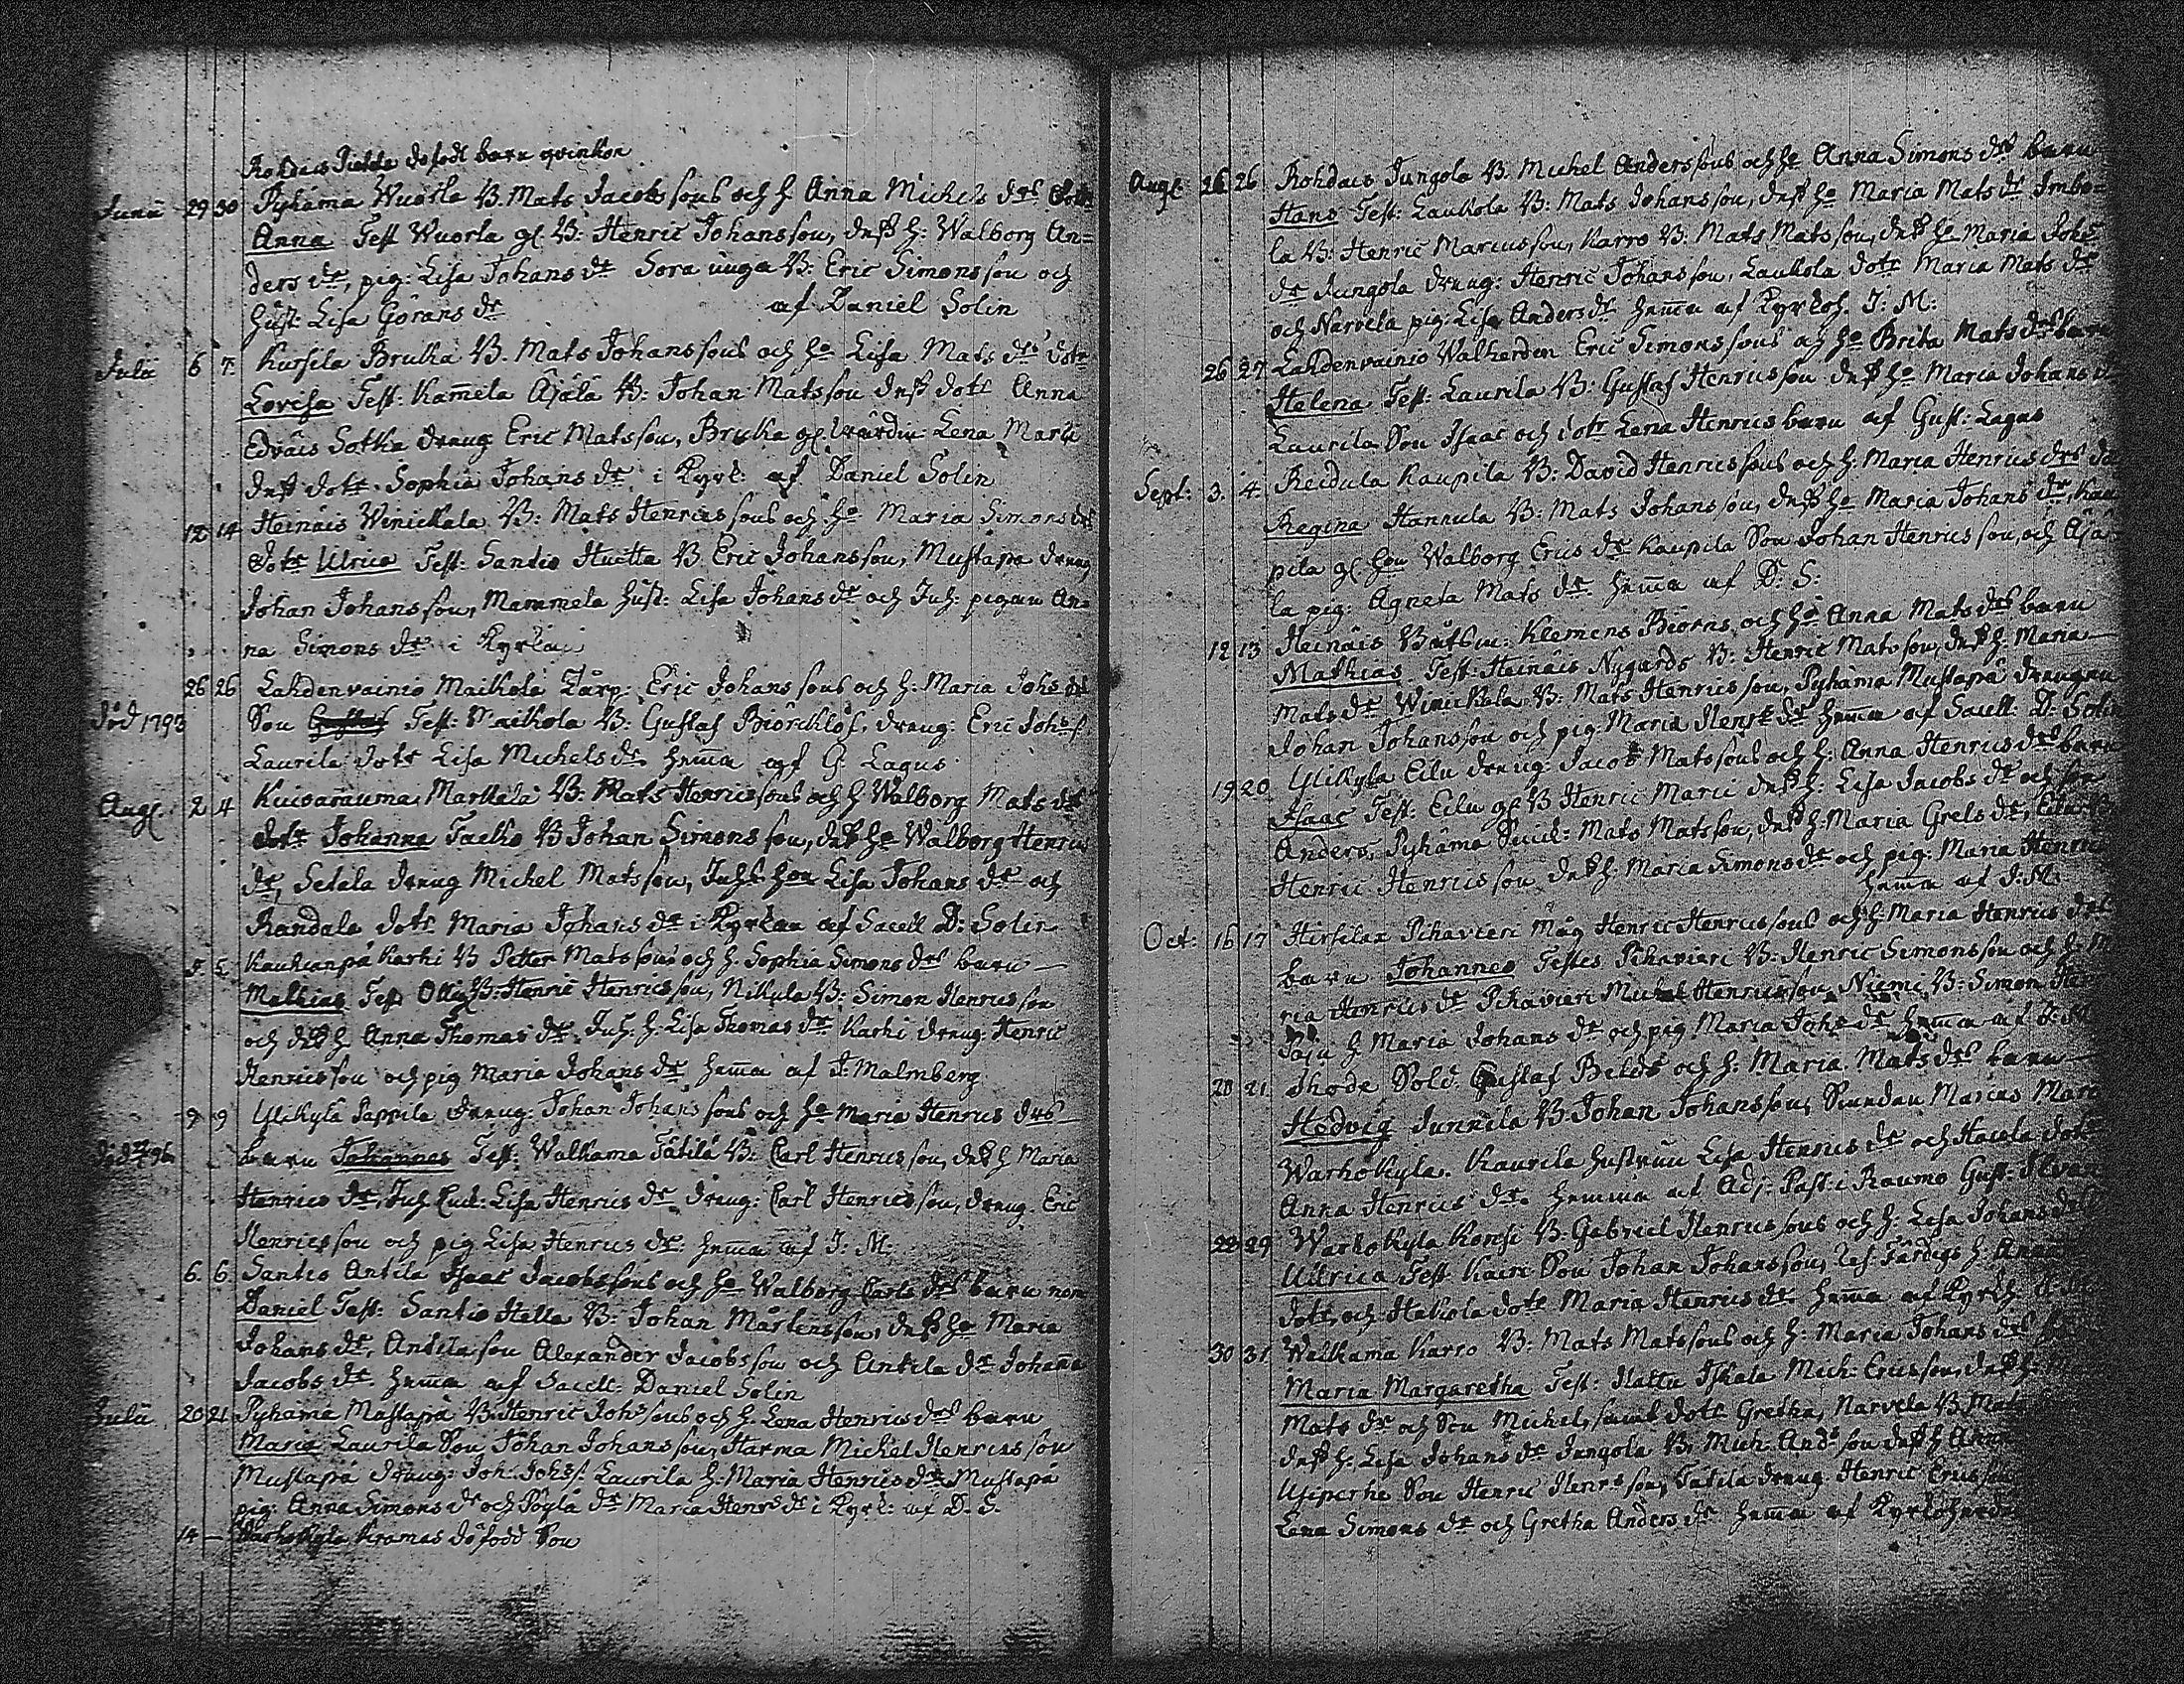 Rohdais Juckla dofödt barn qvinkön
Junii 29 30 Pyhäma Wuorla B. Mats Jacobssons och h. Anna Michels drs Dotr
Anna Test Wuorla gl. B: Henric Johansson, dess h: Walborg An=
ders dr, pig: Lisa Johans dr Sora unga B: Eric Simonsson och
Hust: Lisa Görans dr af Daniel Solin
Julii 6 7. Kursila Bruka B. Mats Johanssons och ho Lisa Mats drs dotr
Lovisa Test: Kam̄ela Äjälä B: Johan Matsson dess dotr Anna
Edväis Sotka dreng Eric Matsson, Bruka gl. Lena Marie
dess dotr Sophia Johans dr i Kyrk: af Daniel Solin
12 14 Heinäis Winickala B: Mats Henricssons och ho Maria Simons drs
dotr Ulrica Test: Santio Huitta B. Eric Johansson, Mustapa dreng
Johan Johansson, Mammela Hust: Lisa Johans dr och Inh: pigan An=
na Simons dr i Kyrkan
26 26 Lahdenvainio Maikola Torp: Eric Johanssons och h: Maria Johs drs
död 1793 Son Gustaf Test: Maikola B: Gustaf Biörcklöf, dreng: Eric Johs s.
Laurila dotr Lisa Michels dr hem̄a af G. Lagus
Aug. 2 4 Kuivarauma Markala B: Mats Henricssons och h Walborg Mats drs
dotr Johanna Taelho B Johan Simonsson, dess ho Walborg Henrics
dr, Setala dreng Michel Matsson, Inhs hon Lisa Johans dr och
Randala dotr Maria Johans dr i Kyrkan af Sacell D: Solin
5. 5. Kauhianpä Karhi B Petter Matssons och h. Sophia Simons drs barn
Mathias Test Olli B: Henric Henricsson, Nikula B: Simon Henricsson
och dess h Anna Thomas dr Inh. h: Lisa Thomas dr Karhi dreng: Henric
Henricsson och pig Maria Johans dr hem̄a af J: Malmberg
9 9 Ylikylä Pappila dreng: Johan Johanssons och ho Maria Henrics drs
död 1796 barn Johannes Test: Walkama Tätilä B: Carl Henricsson, dess h Maria
Henrics dr, Inh Enk: Lisa Henrics dr dreng: Carl Henricsson, dreng Eric
Henricsson och pig Lisa Henrics dr: hem̄a af J: M:
6. 6. Santio Antila Isaac Jacobssons och ho Walborg Carls drs barn
Daniel Test: Santio Hella B: Johan Mårtensson, dess ho Maria
Johans dr, Antila son Alexander Jacobsson och Antila dr Johanna
Jacobs dr hem̄a af Sacell: Daniel Solin
Julii 20 21 Pyhäma Mastapä B: Henric Johssons och h. Lena Henrics drs barn
Maria Laurila Son Johan Johansson, Harma Michel Henricsson
Mustapä dreng: Joh: Johss: Laurila h: Maria Henrics dr Mustapä
pig: Anna Simons dr och Pöylä dr Maria Henrs dr i Kyrk: af D. S.
14 — Warhokyla Kramas döfödd Son
Aug. 26 26 Rohdais Jungola B. Michel Anderssons och ho Anna Simons drs barn
Hans Test: Laukola B: Mats Johansson, dess ho Maria Mats dr Imbo=
la B: Henric Marcusson, Karro B: Mats Matsson, dess ho Maria Johs
dr Jungola dreng: Henric Johansson, Laukola dotr Maria Mats dr
och Narvela pig: Lisa Anders dr hem̄a af Kyrkoh. J: M:
26 27 Lahdenvainio Eric Simonssons och ho Brita Mats drs barn
Helena Test: Laurila B: Gustaf Henricsson dess ho Maria Johans dr
Laurila Son Isaac och dotr Lena Henrics barn af Gust: Lagus
Sept: 3. 4. Reidula Kaupila B: David Henricssons och h: Maria Henrics drs
Regina Hannula B: Mats Johansson, dess ho Maria Johans dr, Kau
pila gl hon Walborg Erics dr Kaupila Son Johan Henricsson, och Äjä
la pig: Agneta Mats dr hem̄a af D: S:
12 13 Heinäis Båtsm: Klemens Biörns och ho Anna Mats drs barn
Mathias Test: Heinäis Nygårds B: Henric Matsson, dess h: Maria
Mats dr Winickala B: Mats Henricsson, Pyhäma Mustapä drengen
Johan Johansson och pig: Maria Henr: dr hem̄a af Sacell: D: Solin
19 20 Ylikyla Eilu dreng: Jacob Matssons och h: Anna Henrics drs barn
Isaac Test: Eilu gl B Henric Marci dess h: Lisa Jacobs dr och son
Anders, Pyhäma Mats Matsson, dess h: Maria Grels dr, Eilu
Henric Henricsson dess h: Maria Simons dr och pig: Maria Henrics
hem̄a af J: M:
Oct: 16 17 Hirsilax Pihavieri Måg Henric Henricssons och h: Maria Henrics drs
barn Johannes Testes Pihavieri B: Henric Simonsson och h: M
ria Henrics dr Pihavieri Michel Henricsson, Niemi, B: Simon
h Maria Johans dr och pig Maria Johs dr hem̄a af J: M
20 21 Ihode Sold. Gustaf Bilds och h: Maria Mats drs barn
Hedvig Junnila B: Johan Johansson,
Warhokyla. Kaurila hustrun Lisa Henrics dr och Haiola dotr
Anna Henrics dr. hemma af Adj: Past: i Raumo Gust:
22 29 Warhokyla Konsi B: Gabriel Henricssons och h: Lisa Johans drs
Ullrica Test: Kairi Son Johan Johansson, Färdigs h: Anna
dotr och Hakiola dotr Maria Henrics dr hem̄a af Kyrkoh
30 31. Walkama Karro B: Mats Matssons och h: Maria Johans drs
Maria Margaretha Test: Mich: Ericsson, dess h:
Mats dr och Son Michel, samt dotr Gretha, Narvela B. Mats
dess h: Lisa Johans dr Jungola B. Mich: Ands son dess h Anna
Usiperhe Son Henric Henrsson, Tatila dreng Henric Ericsson
Lena Simons dr och Gretha Anders dr hem̄a af Kyrkoherden